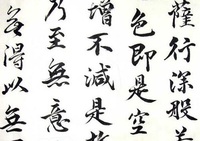 薩行深般若
色即是空
增不減是故
乃至無意
無得以無